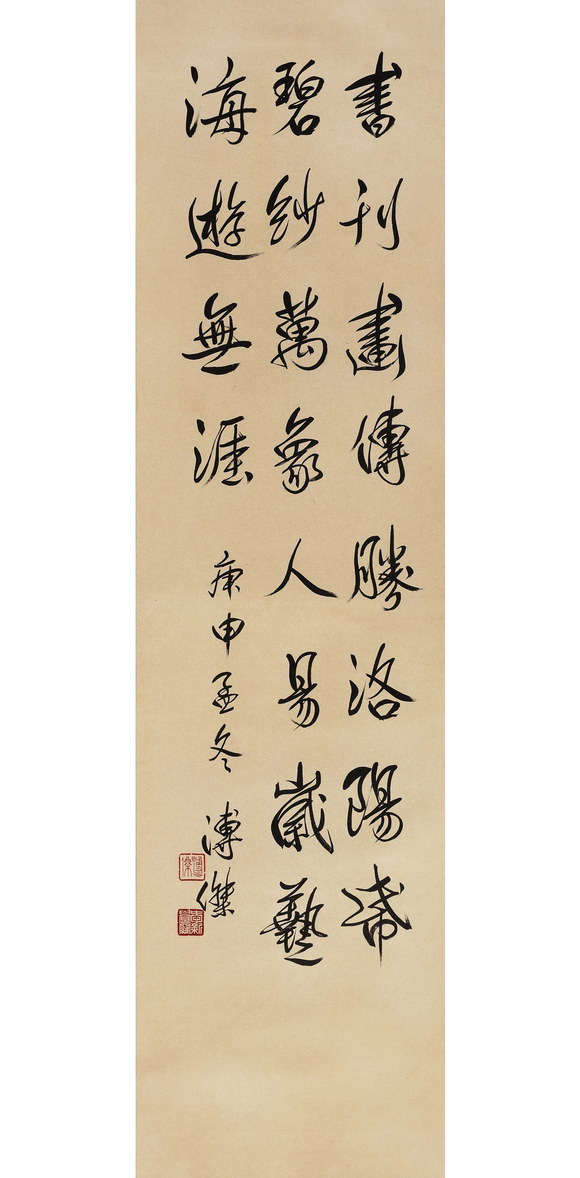 書刊畫傳勝洛陽帋
碧紗萬象人易歲藝
海遊無涯
庚申孟冬 溥傑